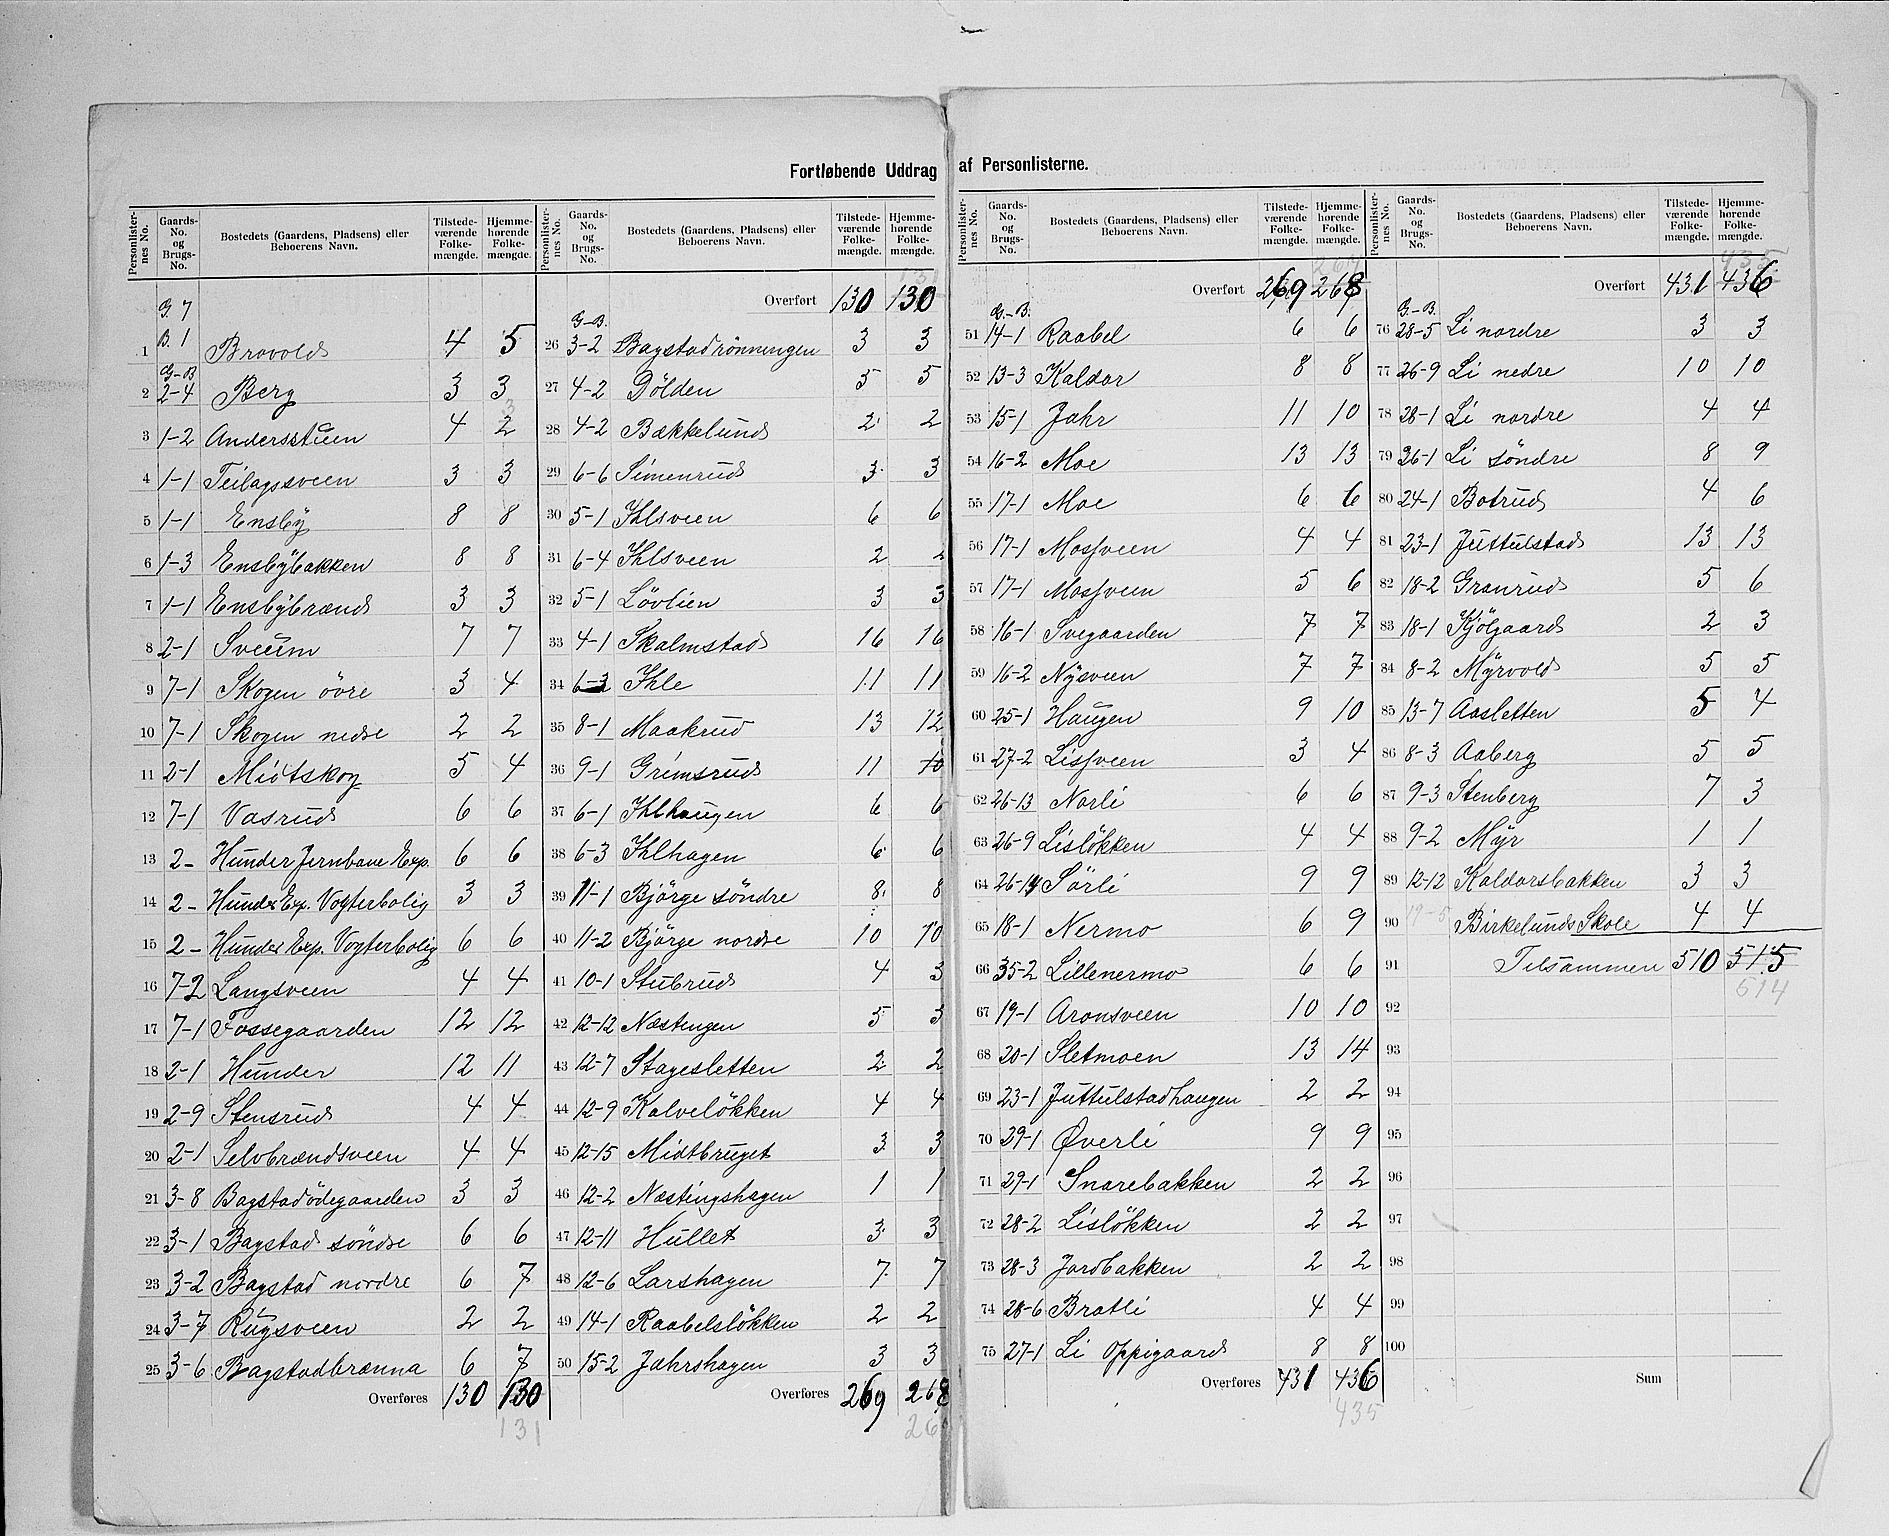 Fortløbende Uddrag af Personlisterne.
Personlister-nes No. | Gaards-No. og Brugs-No. | Bostedets (Gaardens, Pladsens) eller Beboerens Navn. | Tilstede-værende Folke-mængde. | Hjemme-hørende Folke-mængde.
G. 7
1 B. 1 Brovold 4 5
G-B
2 2-4 Berg 3 3
3
3 1-2 Andersstuen 4 2
4 1-1 Teilagssveen 3 3
5 1-1 Ensby 8 8
6 1-3 Ensbybakken 8 8
7 1-1 Ensbybrænd 3 3
8 2-1 Sveum 7 7
9 7-1 Skogen övre 3 4
10 7-1 Skogen nedre 2 2
11 2-1 Midtskog 5 4
12 7-1 Vasrud 6 6
13 2- Hunder Jernbane Exp. 6 6
14 2- Hunder Exp. Vogterbolig 3 3
15 2- Hunder Exp. Vogterbolig 6 6
16 7-2 Langsveen 4 4
17 7-1 Fossegaarden 12 12
18 2-1 Hunder 12 11
19 2-9 Stensrud 4 4
20 2-1 Selvbrændsveen 4 4
21 3-8 Bagstadödegaarden 3 3
22 3-1 Bagstad söndre 6 6
23 3-2 Bagstad nordre 6 7
24 3-7 Rugsveen 2 2
25 3-6 Bagstadbrænna 6 7
Overføres 130 130
131
Personlister-nes No. | Gaards-No. og Brugs-No. | Bostedets (Gaardens, Pladsens) eller Beboerens Navn. | Tilstede-værende Folke-mængde. | Hjemme-hørende Folke-mængde.
Overført 130 130
G-B.
26 3-2 Bagstadrönningen 3 3
27 4-2 Dölden 5 5
28 4-2 Bækkelund 2 2
29 6-6 Simenrud 3 3
30 5-1 Ihlsveen 6 6
31 6-4 Ihlsveen 2 2
32 5-1 Lövlien 3 3
33 4-1 Skalmstad 16 16
34 6-3 Ihle 11 11
35 8-1 Maakrud 13 12
36 9-1 Grimsrud 11 10
37 6-1 Ihlhaugen 6 6
38 6-3 Ihlhagen 6 6
39 11-1 Björge söndre 8 8
40 11-2 Björge nordre 10 10
41 10-1 Stubrud 4 3
42 12-12 Næstingen 5 3
43 12-7 Stagesletten 2 2
44 12-9 Kalvelökken 4 4
45 12-15 Midtbruget 3 3
46 12-2 Næstingshagen 1 1
47 12-11 Hullet 3 3
48 12-6 Larshagen 7 7
49 14-1 Raabelslökken 2 2
50 15-2 Jahrshagen 3 3
Overføres 269 268
Personlister-nes No. | Gaards-No. og Brugs-No. | Bostedets (Gaardens, Pladsens) eller Beboerens Navn. | Tilstede-værende Folke-mængde. | Hjemme-hørende Folke-mængde.
Overført 269 268
G.-B.
51 14-1 Raabel 6 6
52 13-3 Kaldor 8 8
53 15-1 Jahr 11 10
54 16-2 Moe 13 13
55 17-1 Moe 6 6
56 17-1 Mosveen 4 4
57 17-1 Mosveen 5 6
58 16-1 Svegaarden 7 7
59 16-2 Nysveen 7 7
60 25-1 Haugen 9 10
61 27-2 Lissveen 3 4
62 26-13 Norli 6 6
63 26-9 Lislökken 4 4
64 26-14 Sörli 9 9
65 18-1 Nermo 6 9
66 35-2 Lillenermo 6 6
67 19-1 Aronsveen 10 10
68 20-1 Sletmoen 13 14
69 23-1 Juttulstadhaugen 2 2
70 29-1 Øverli 9 9
71 29-1 Snarebakken 2 2
72 28-2 Lislökken 2 2
73 28-3 Jordbakken 2 2
74 28-6 Bratli 4 4
75 27-1 Li Oppigaard 8 8
Overføres 431 436
435
Personlister-nes No. | Gaards-No. og Brugs-No. | Bostedets (Gaardens, Pladsens) eller Beboerens Navn. | Tilstede-værende Folke-mængde. | Hjemme-hørende Folke-mængde.
435
Overført 431 436
G.-B.
76 28-5 Li nordre 3 3
77 26-9 Li nedre 10 10
78 28-1 Li nordre 4 4
79 26-1 Li söndre 8 9
80 24-1 Botrud 4 6
81 23-1 Juttulstad 13 13
82 18-2 Granrud 5 6
83 18-1 Kjölgaard 2 3
84 8-2 Myrvold 5 5
85 13-7 Aasletten 5 4
86 8-3 Aaberg 5 5
87 9-3 Stenberg 7 3
88 9-2 Myr 1 1
89 12-12 Kaldorsbakken 3 3
90 19-5 Birkelunds Skole 4 4
91 Tilsammen 510 515
514
92
93
94
95
96
97
98
99
100
Sum